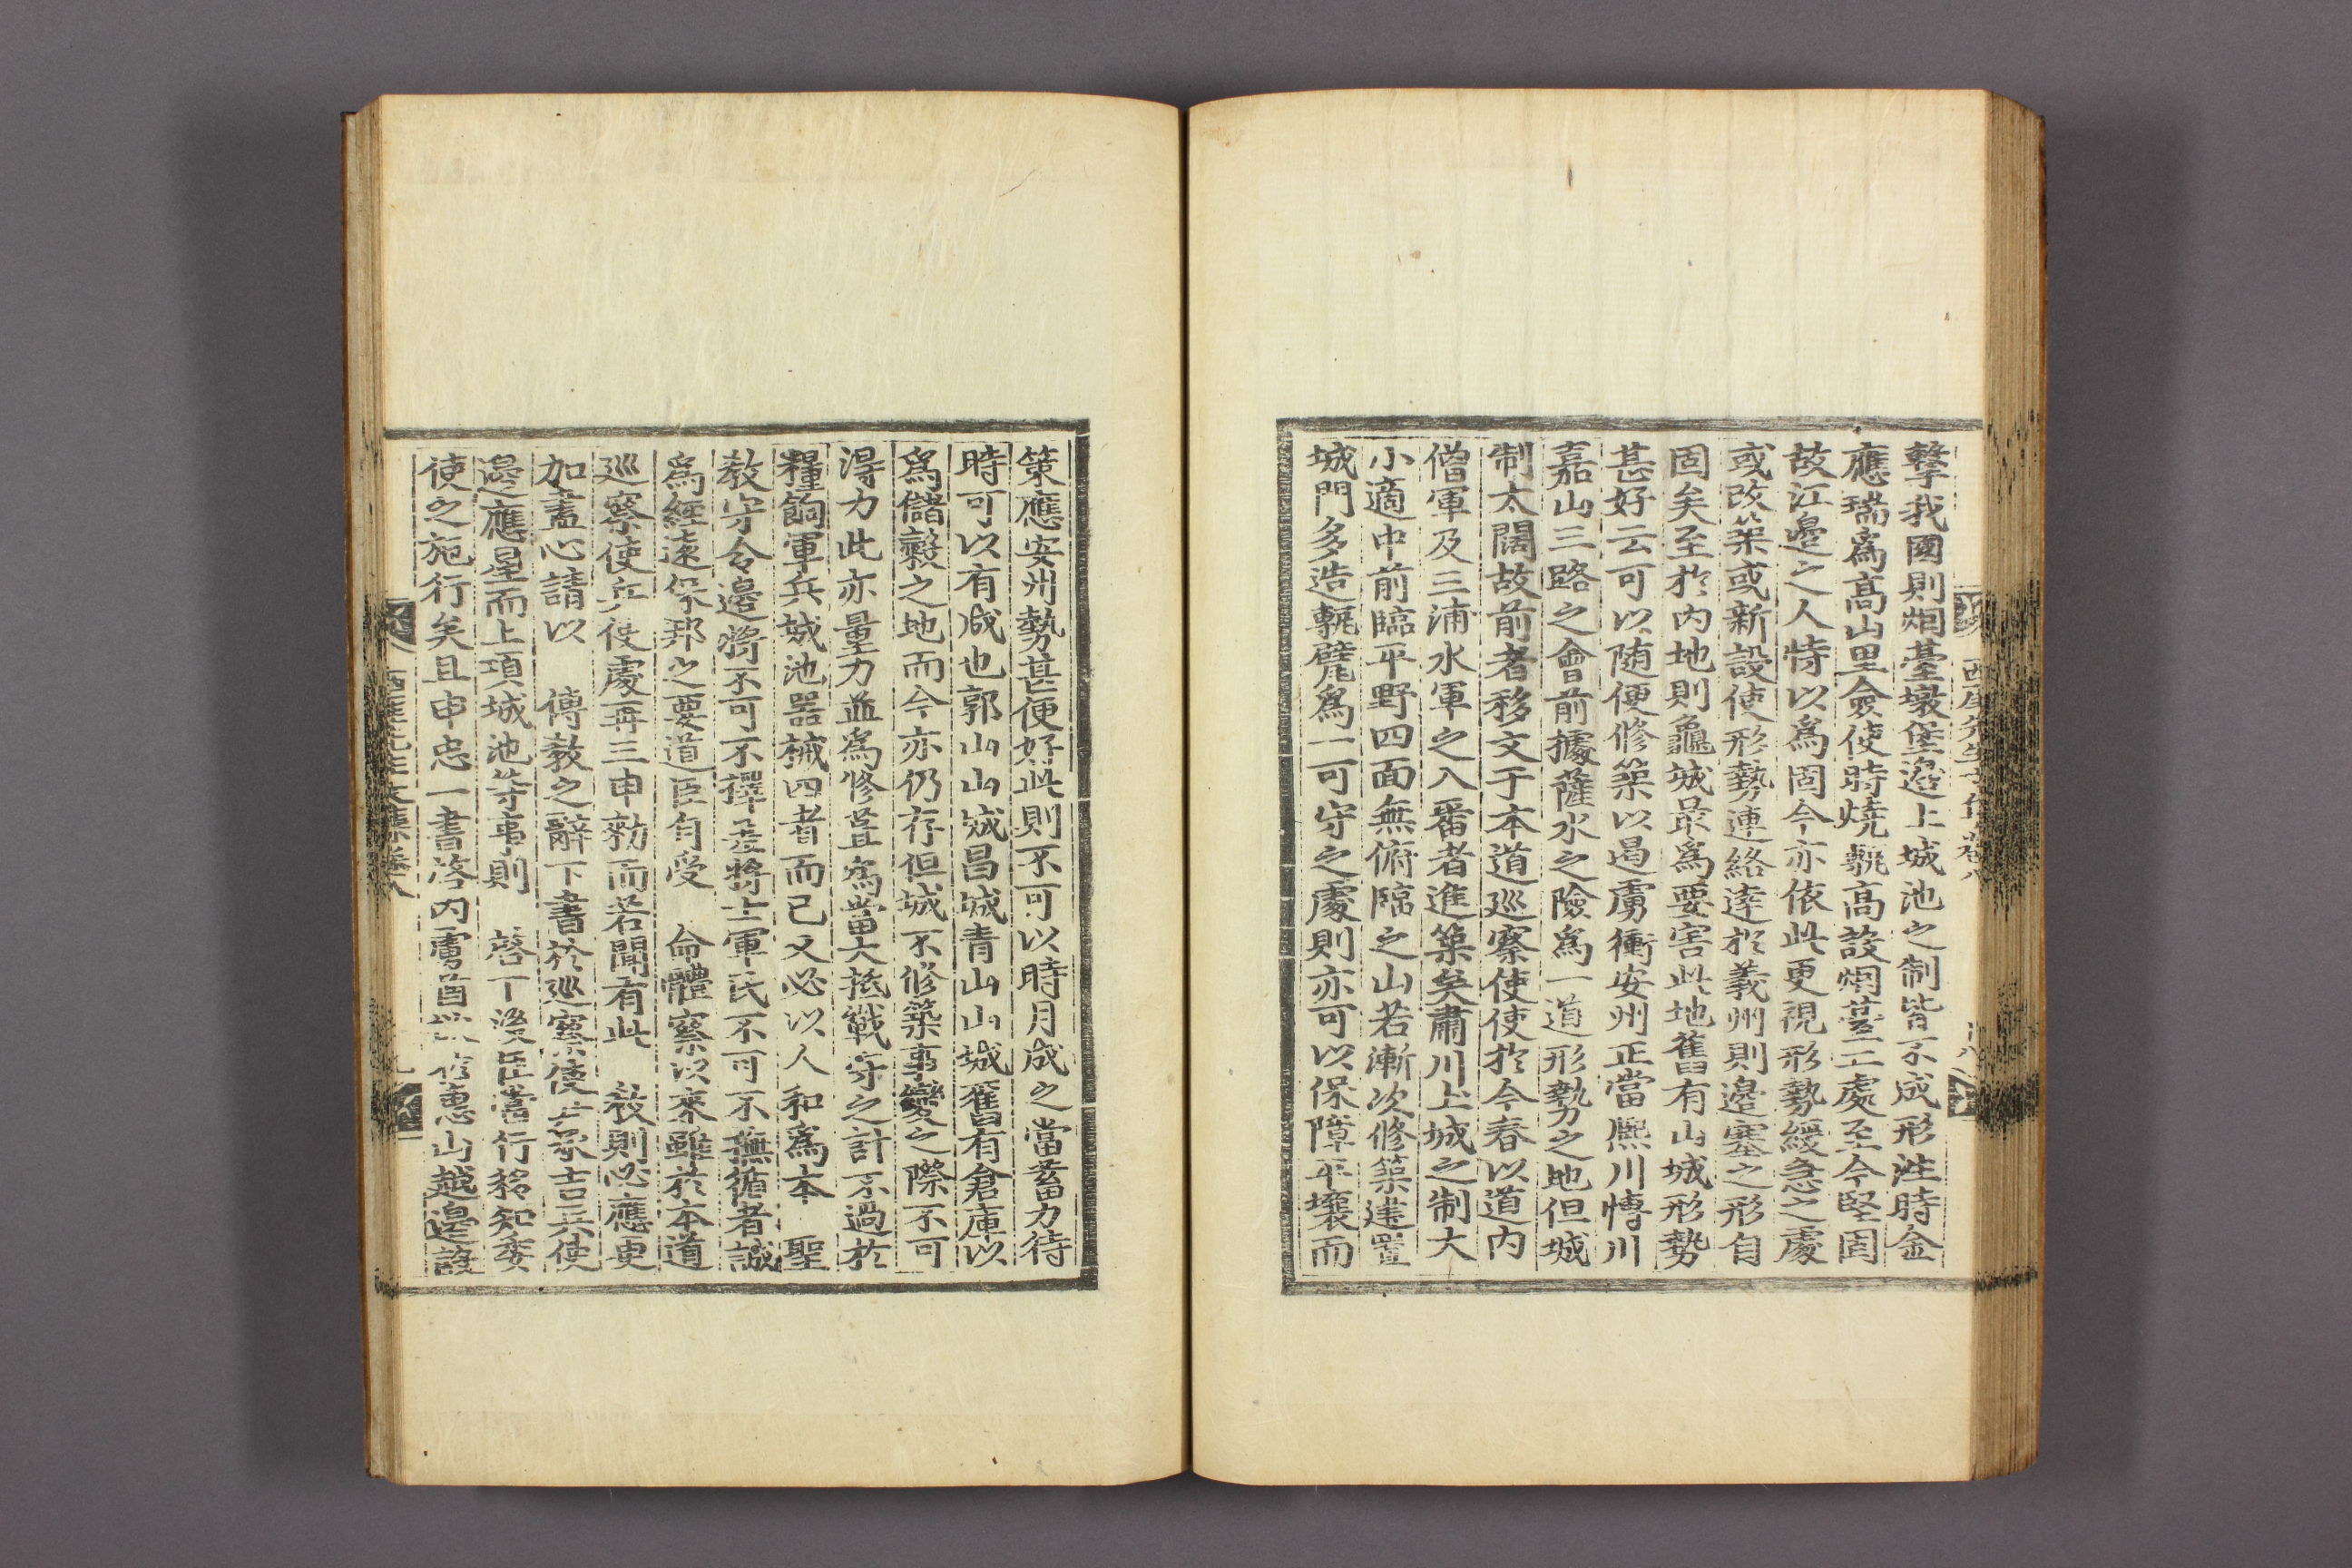 擊我國則烟臺墩堡邊上城池之制皆不成形徃時金
應瑞爲高山里僉使時燒甎高設烟臺二處至今堅固
故江邊之人恃以爲固今亦依此更視形勢緩急之處
或改築或新設使形勢連絡逹於義州則邊塞之形自
固矣至於內地則龜城最爲要害此地舊有山城形勢
甚好云可以随便修築以遏虜衝安州正當熈川慱川
嘉山三路之會前據薩水之險爲一道形勢之地但城
制太闊故前者移文于本道巡察使使於今春以道內
僧軍及三浦水軍之入番者進築矣肅川土城之制大
小適中前臨平野四面無俯臨之山若漸次修築建置
城門多造甎甓爲一可守之處則亦可以保障平壤而
西厓先生文集卷八 十八
策應安州勢甚便好此則不可以時月成之當蓄力待
時可以有成也郭山山城昌城青山山城舊有倉庫以
爲儲糓之地而今亦仍存但城不修築事變之際不可
得力此亦量力並爲修葺爲當大抵戰守之計不過於
糧餉軍兵城池器械四者而已又必以人和爲本 聖
敎守令邊將不可不擇差將士軍民不可不撫循者誠
爲經遠保邦之要道臣自受 命體察以來雖於本道
巡察使兵使處再三申勑而若聞有此 敎則必應更
加盡心請以 傳敎之辭下書於巡察使
邊應星而上項城池等事則 啓下後臣當行移知委
使之施行矣且申忠一書啓內虜酋 山越邊設
西厓先生文集卷八